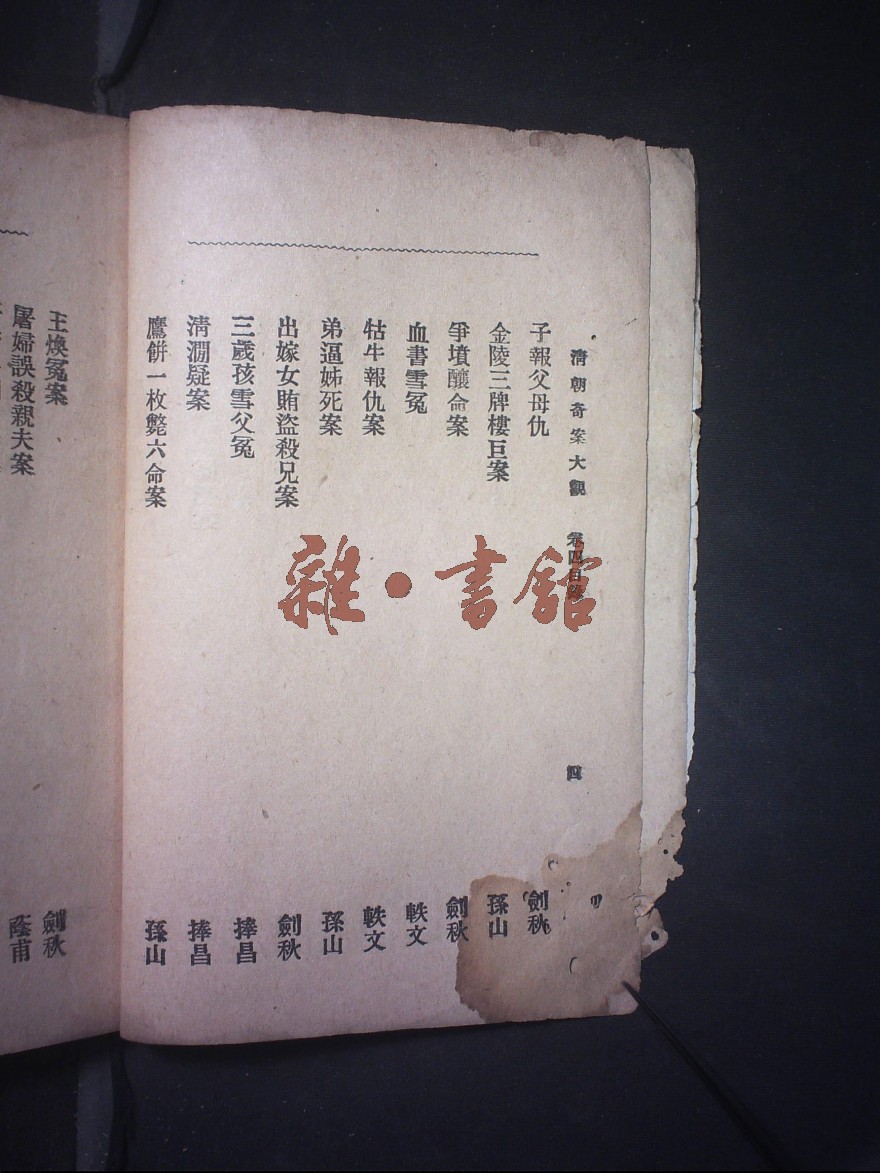 清朝奇案大觀 卷四目錄 四
子報父母仇 劍秋
金陵三牌樓巨案 孫山
爭墳釀命案 劍秋
血書雪冤 軼文
牯牛報仇案 軼文
弟逼姊死案 孫山
出嫁女賄盜殺兄案 劍秋
三歲孩雪父冤 捧昌
清澗疑案 捧昌
鷹餅一枚斃六命案 孫山
王煥冤案 劍秋
屠婦誤殺親夫案 蔭甫
雜·書館